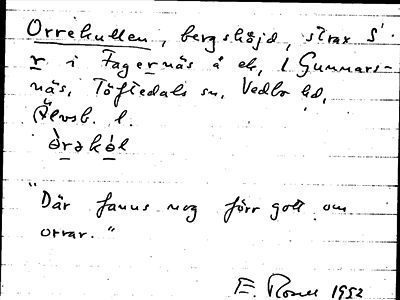 Orrekullen, bergshöjd, strax S
r i Fagernäs å ek, l Gunnars-
näs, Töftedals sn, Vedbo hd,
Älvsb. l.
"Där fanns nog förr gott om
orrar."
E. 1952